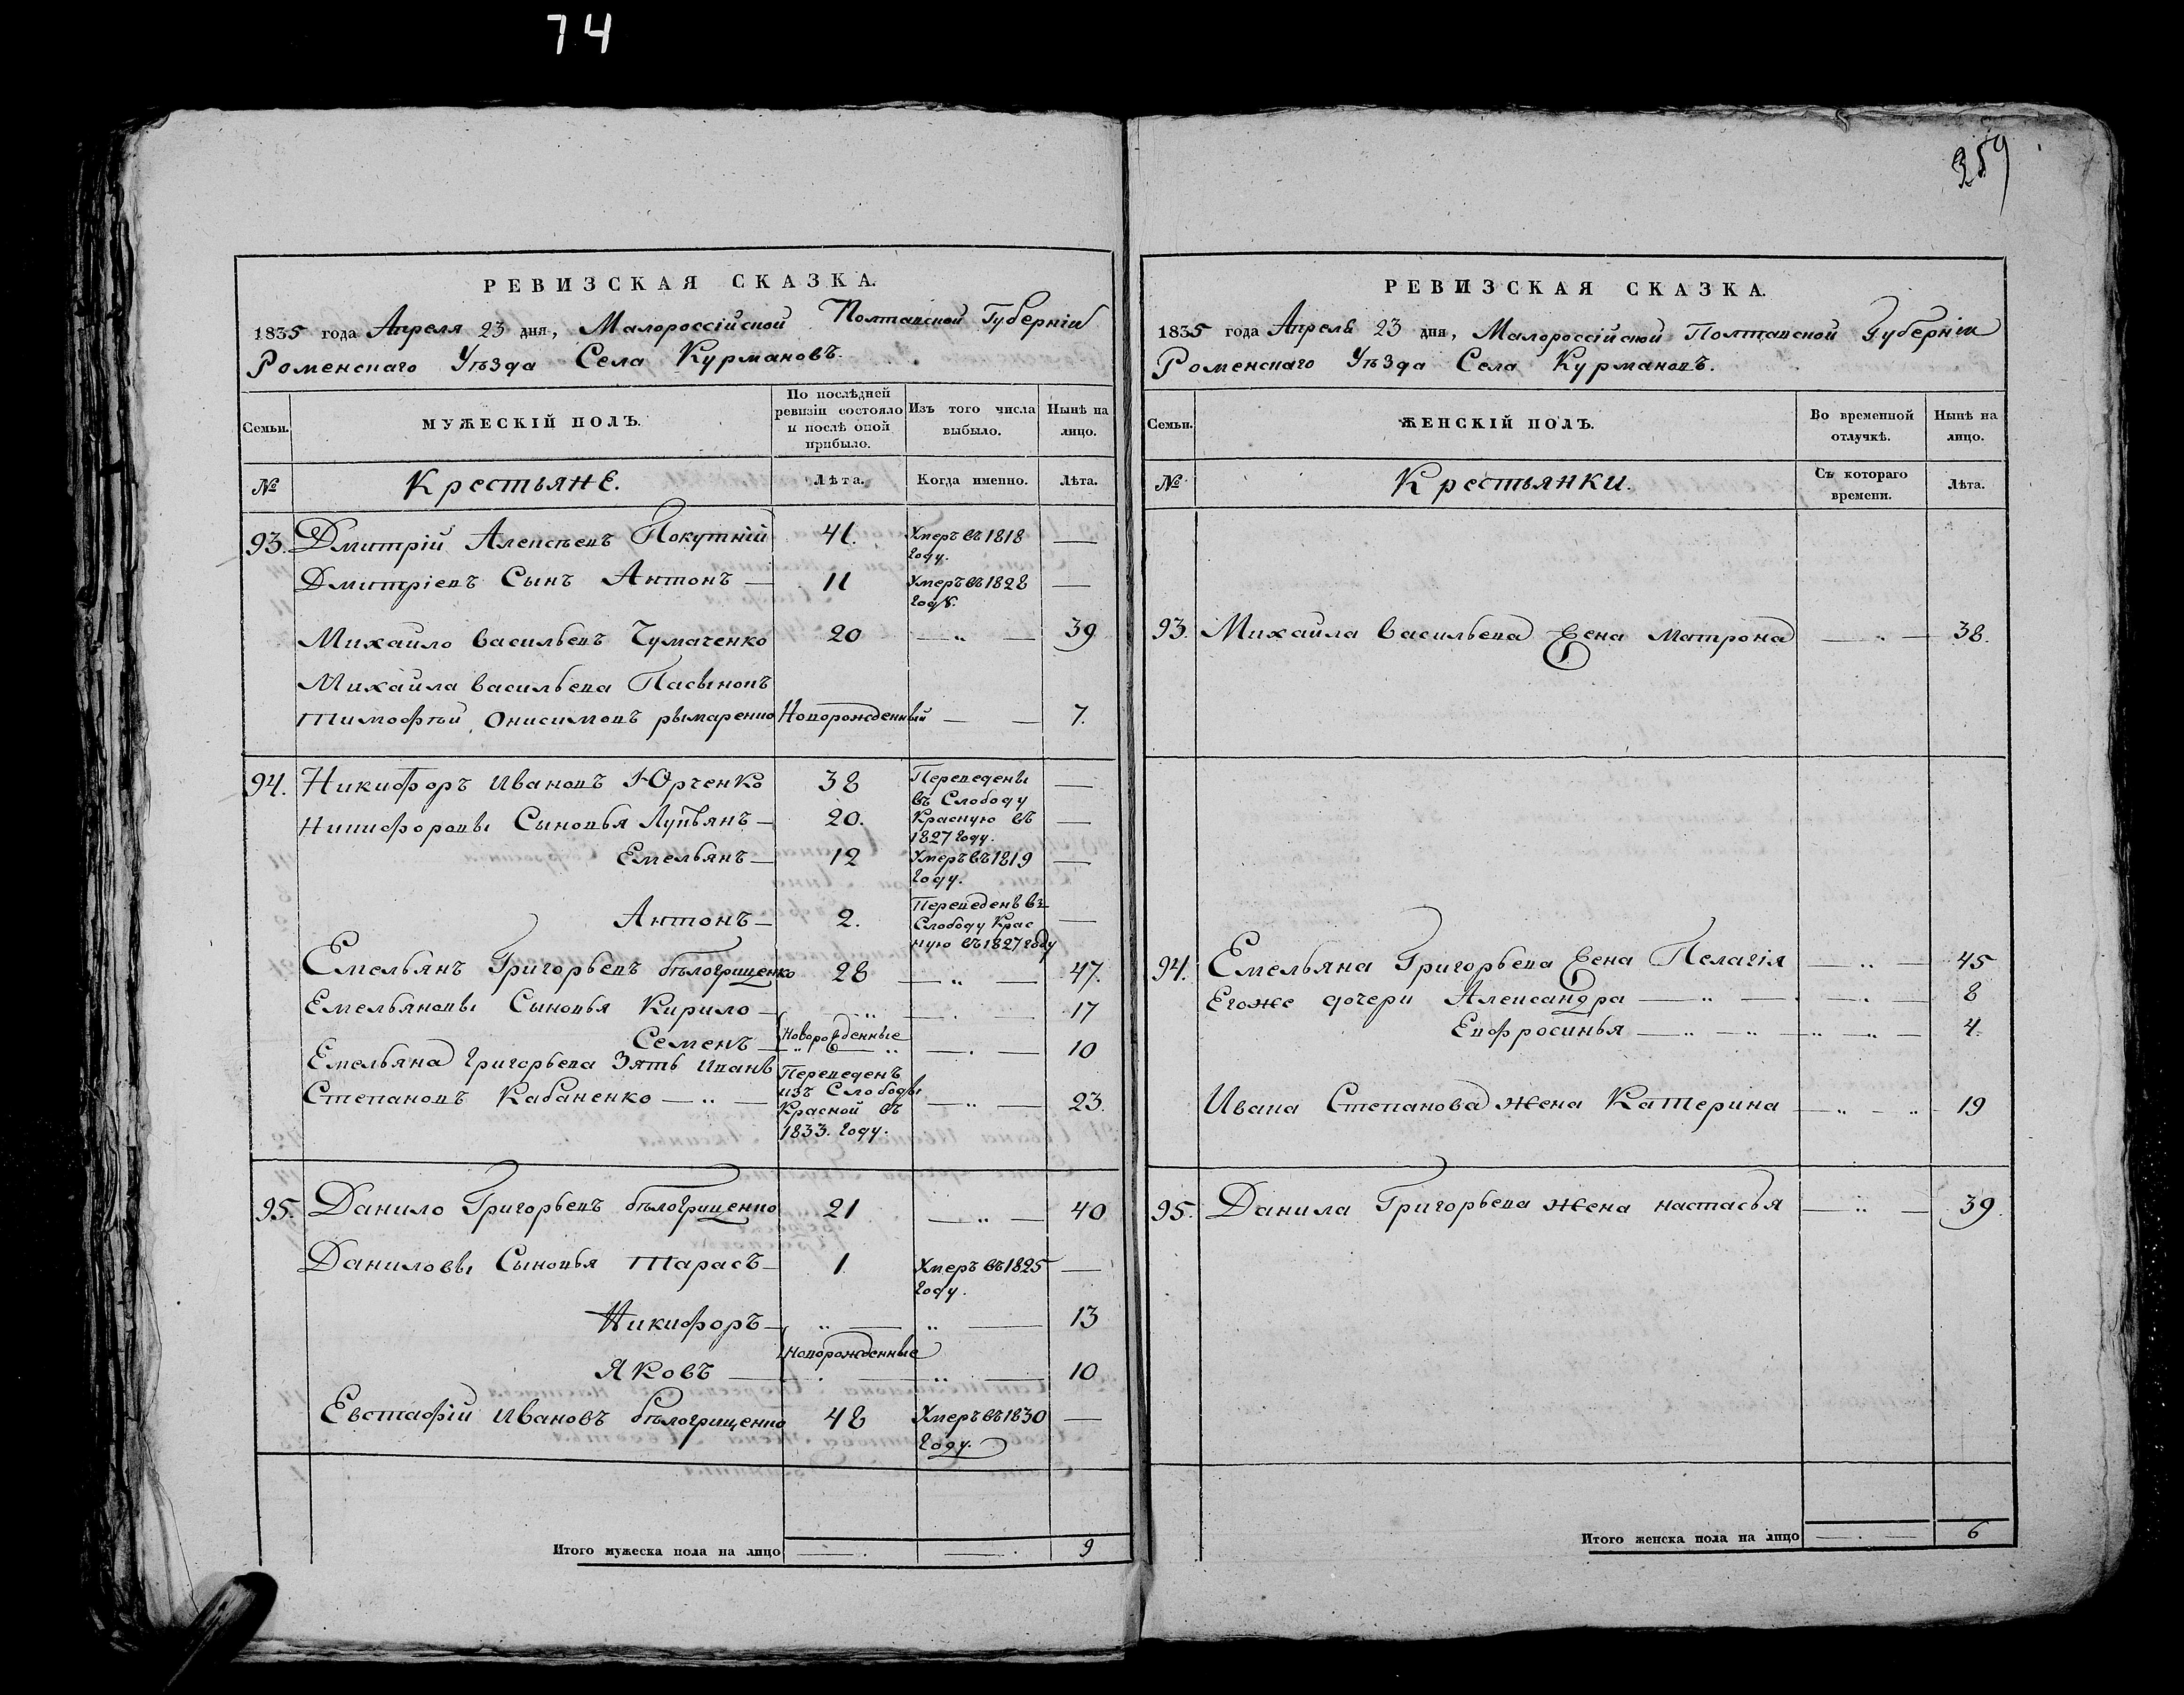 74
359
РЕВИЗСКАЯ СКАЗКА.
1835 года Апреля 23 дня, Малороссійской Полтавской Губерніи
Роменскаго Уѣзда Села Курмановъ.
Семьи.
МУЖЕСКІЙ ПОЛЪ.
По послѣдней ревизіи состояло и послѣ оной прибыло.
Изъ того числа выбыло.
Нынѣ на лицо.
№
Крестьяне.
Лѣта.
Когда именно.
Лѣта.
93. Дмитрій Алексѣевъ Покутній 41. Умеръ въ 1818 году. —
Дмитріевъ Сынъ Антонъ — 11 Умеръ въ 1828 году. —
Михайло Васильевъ Чумаченко 20 — „ — 39
Михайла Васильева Пасынокъ
Тимофѣй Онисимовъ рымаренко Новорожденный — — 7.
94. Никифоръ Ивановъ Юрченко 38 Переведены —
Никифоровы Сыновья Лукьянъ — 20. въ Слободу Красную въ 1827 году. —
Емельянъ — 12 Умеръ въ 1819 году. —
Антонъ — 2. Переведенъ въ Слободу Красную въ 1827 году —
Емельянъ Григорьевъ бѣлогрищенко 28 — „ — 47.
Емельяновы Сыновья Кирило — „ — . — 17
Семенъ — Новорожденные — . — 10
Емельяна Григорьева Зять Иванъ
Степановъ Кабаненко — „ — Переведенъ изъ Слободы Красной въ 1833. году. — „ — 23.
95. Данило Григорьевъ бѣлогрищенко 21 — „ — 40
Даниловы Сыновья Тарасъ — 1 Умеръ въ 1825 году. —
Никифоръ — „ — „ — 13
Новорожденные
Яковъ — . — „ — 10
Евстафій Ивановъ бѣлогрищенко 48 Умеръ въ 1830 году. —
Итого мужеска пола на лицо — . — . 9
РЕВИЗСКАЯ СКАЗКА.
1835 года Апреля 23 дня, Малороссійской Полтавской Губерніи
Роменскаго Уѣзда Села Курмановъ.
Семьи.
ЖЕНСКІЙ ПОЛЪ.
Во временной отлучкѣ.
Нынѣ на лицо.
№
Крестьянки.
Съ котораго времени.
Лѣта.
93. Михайла Васильева Жена Матрона — „ — 38.
94. Емельяна Григорьева Жена Пелагія — „ — 45
Егоже дочери Александра — „ — . — „ — 8
Евфросинья — „ — „ — „ — „ — 4.
Ивана Степанова Жена Катерина — „ — „ — 19
95. Данила Григорьева Жена настасья — „ — 39
Итого женска пола на лицо — . — 6